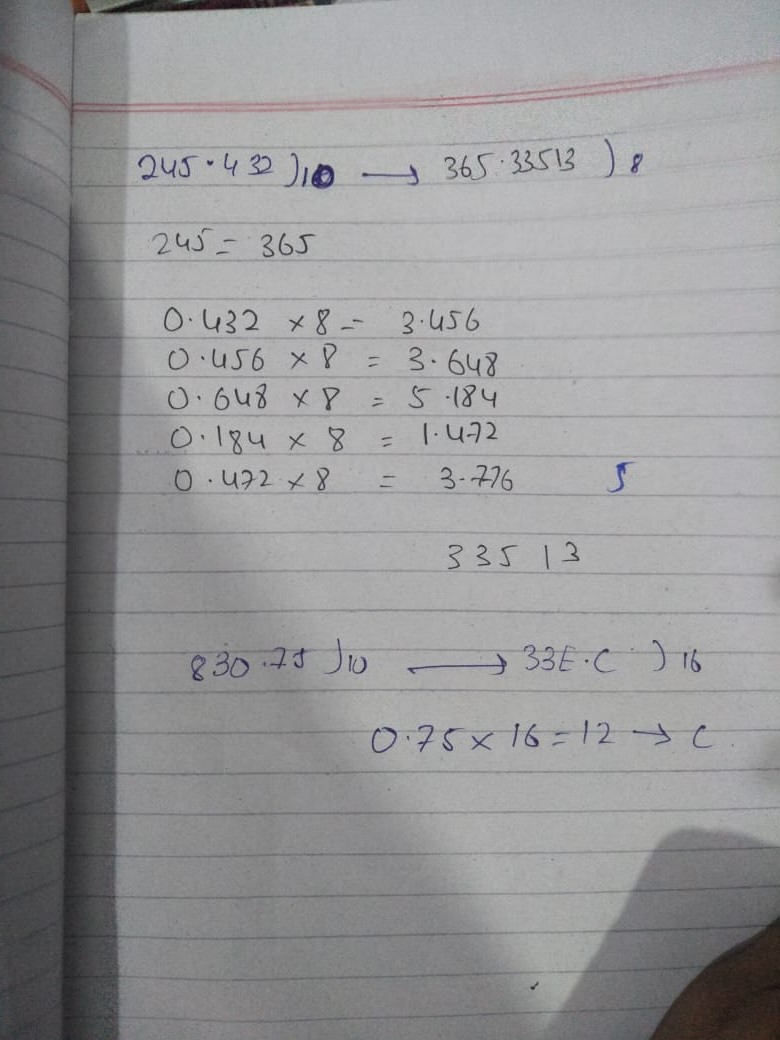 245.432)10 → 365.33513)8
245 = 365
0.432 × 8 = 3.456
0.456 × 8 = 3.648
0.648 × 8 = 5.184
0.184 × 8 = 1.472
0.472 × 8 = 3.776 5
33513
830.75)10 → 33E.C)16
0.75 × 16 = 12 → C